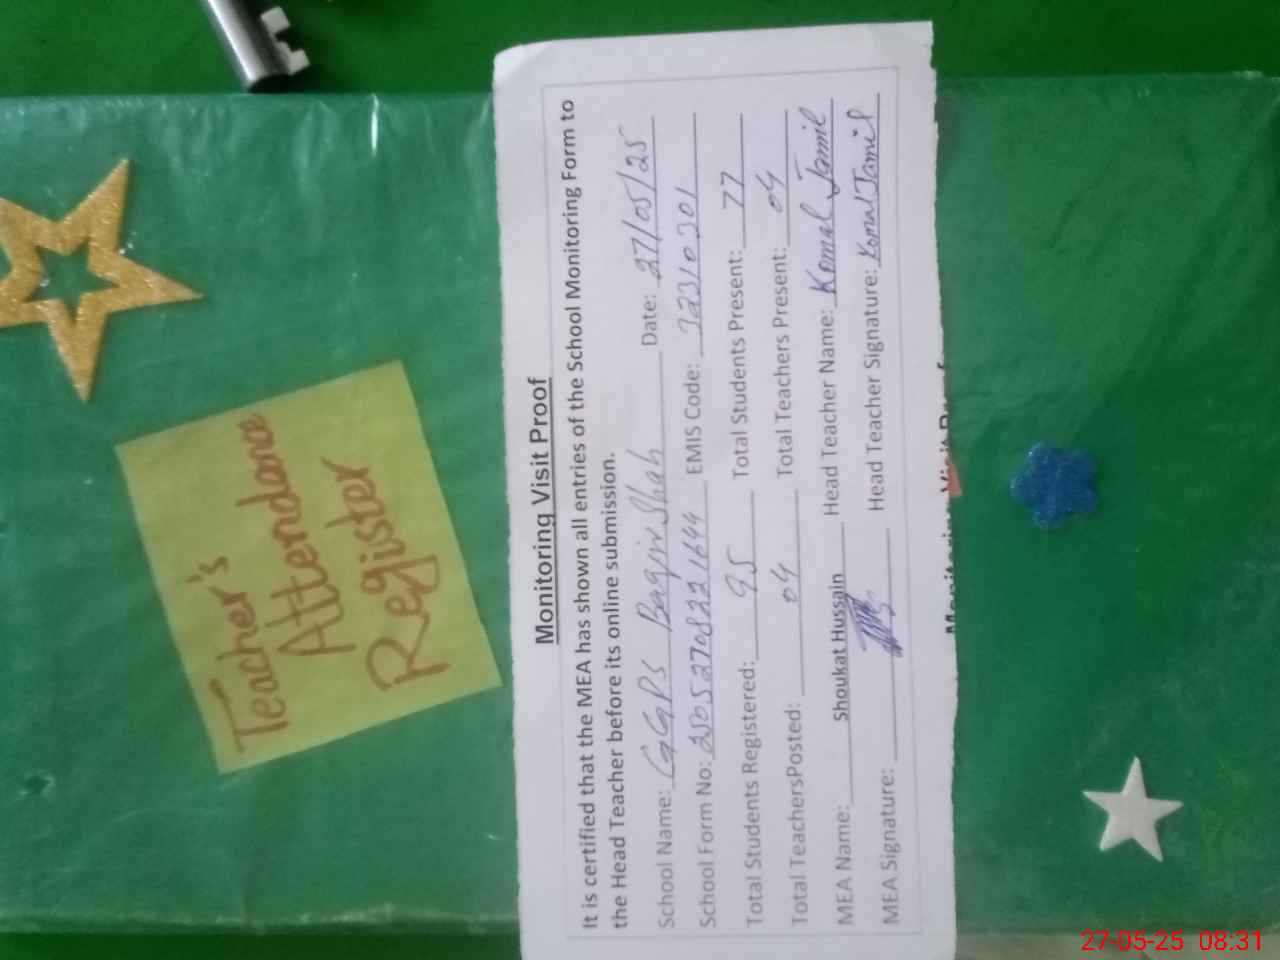 Teacher's
Attendance
Register
Monitoring Visit Proof
It is certified that the MEA has shown all entries of the School Monitoring Form to
the Head Teacher before its online submission.
School Name: GGPS Baqir Shah Date: 27/05/25
School Form No: 25052708221644 EMIS Code: 32310301
Total Students Registered: 95 Total Students Present: 77
Total TeachersPosted: 04 Total Teachers Present: 04
MEA Name: Shoukat Hussain Head Teacher Name: Komal Jamil
MEA Signature: Head Teacher Signature: Komal Jamil
27-05-25 08:31